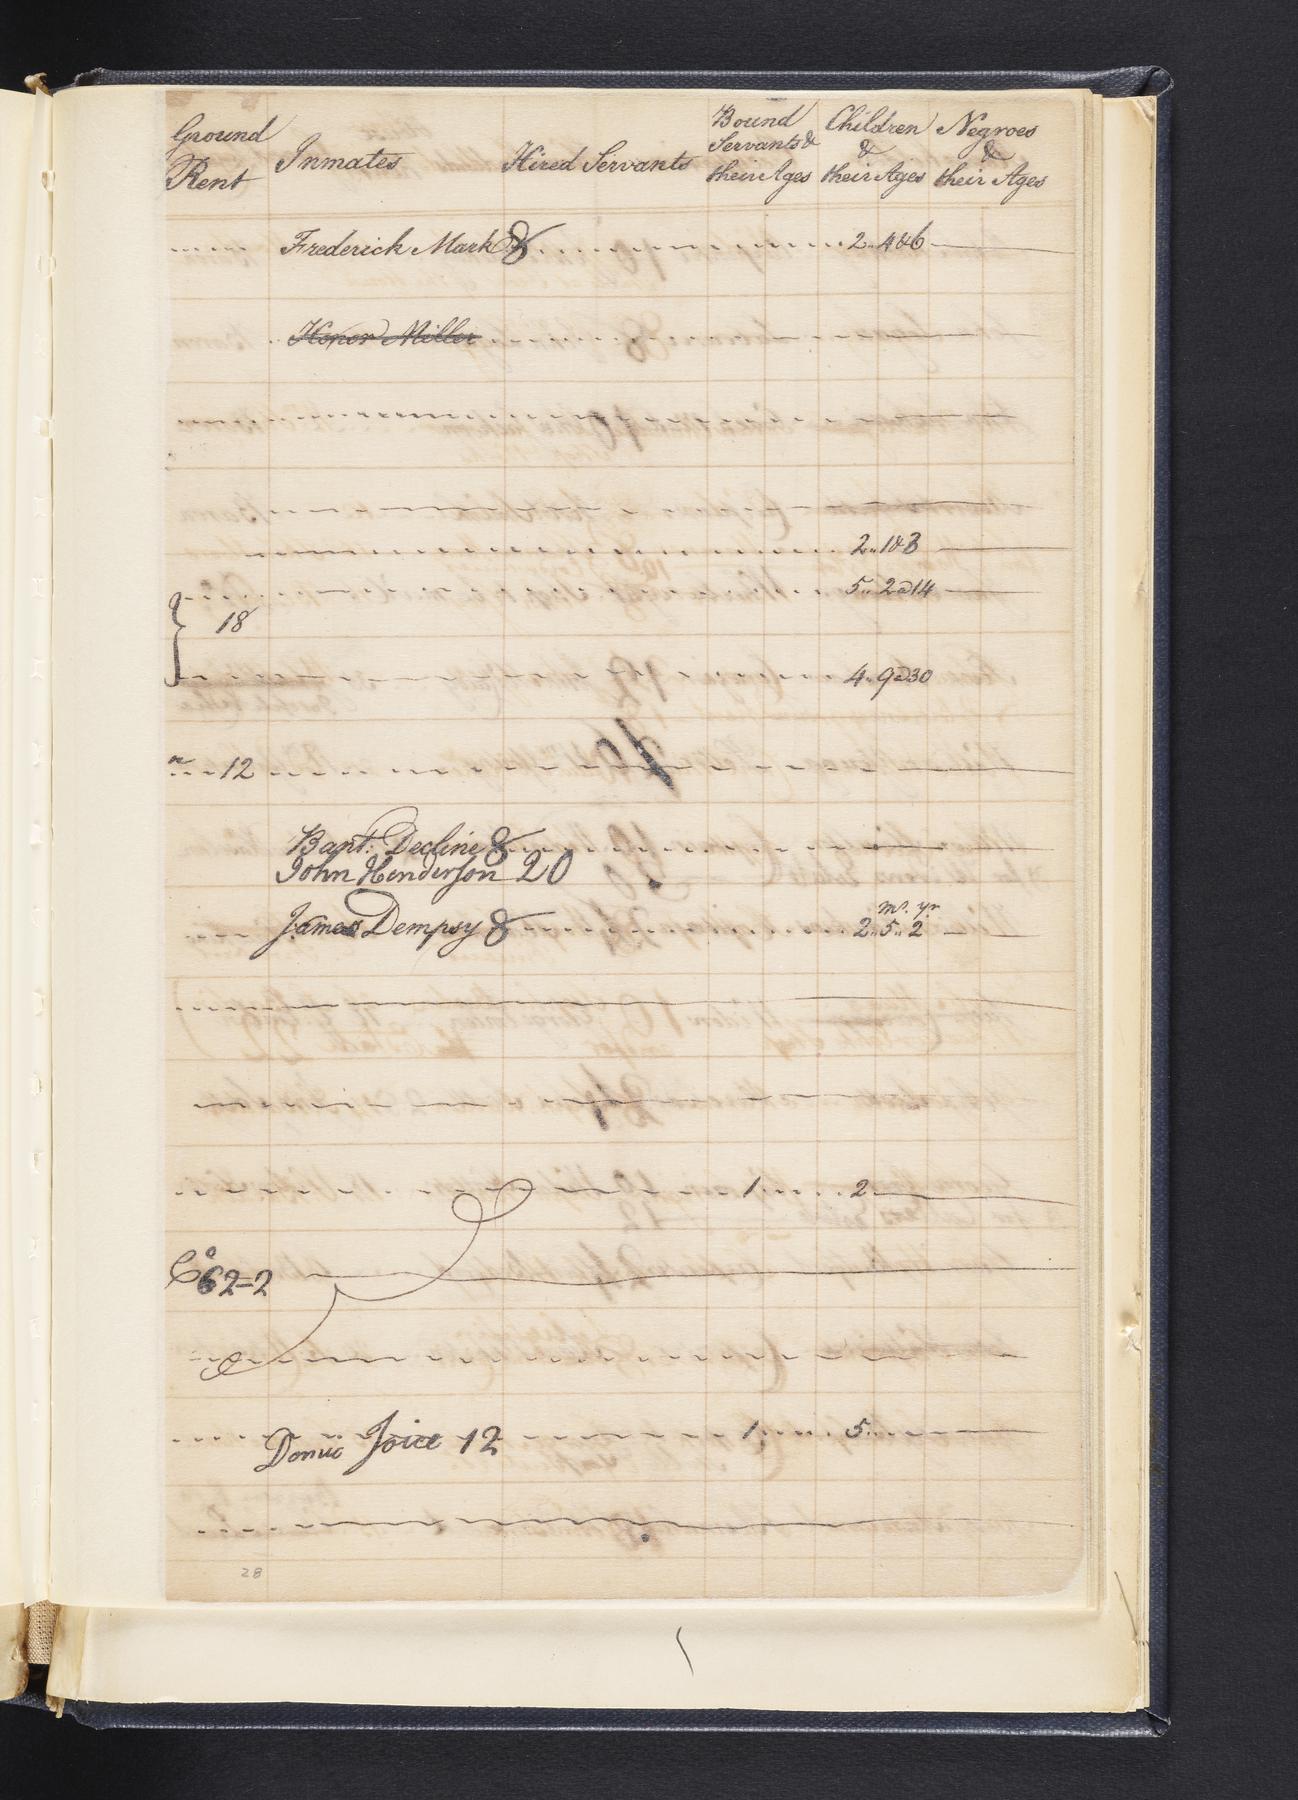 Ground Rent Inmates Hired Servants Bound Servants & their Ages Children & their Ages Negroes & their Ages
Frederick Mark 8 2" 4&6
Honor Miller
2" 1&3
5" 2@14
18
4" 9@30
12
Bant. Decline 8
John Henderson 20
mo. yr
James Dempsy 8 2" 5" 2
1 2
Co 62=2
Joice 12 1 5
28